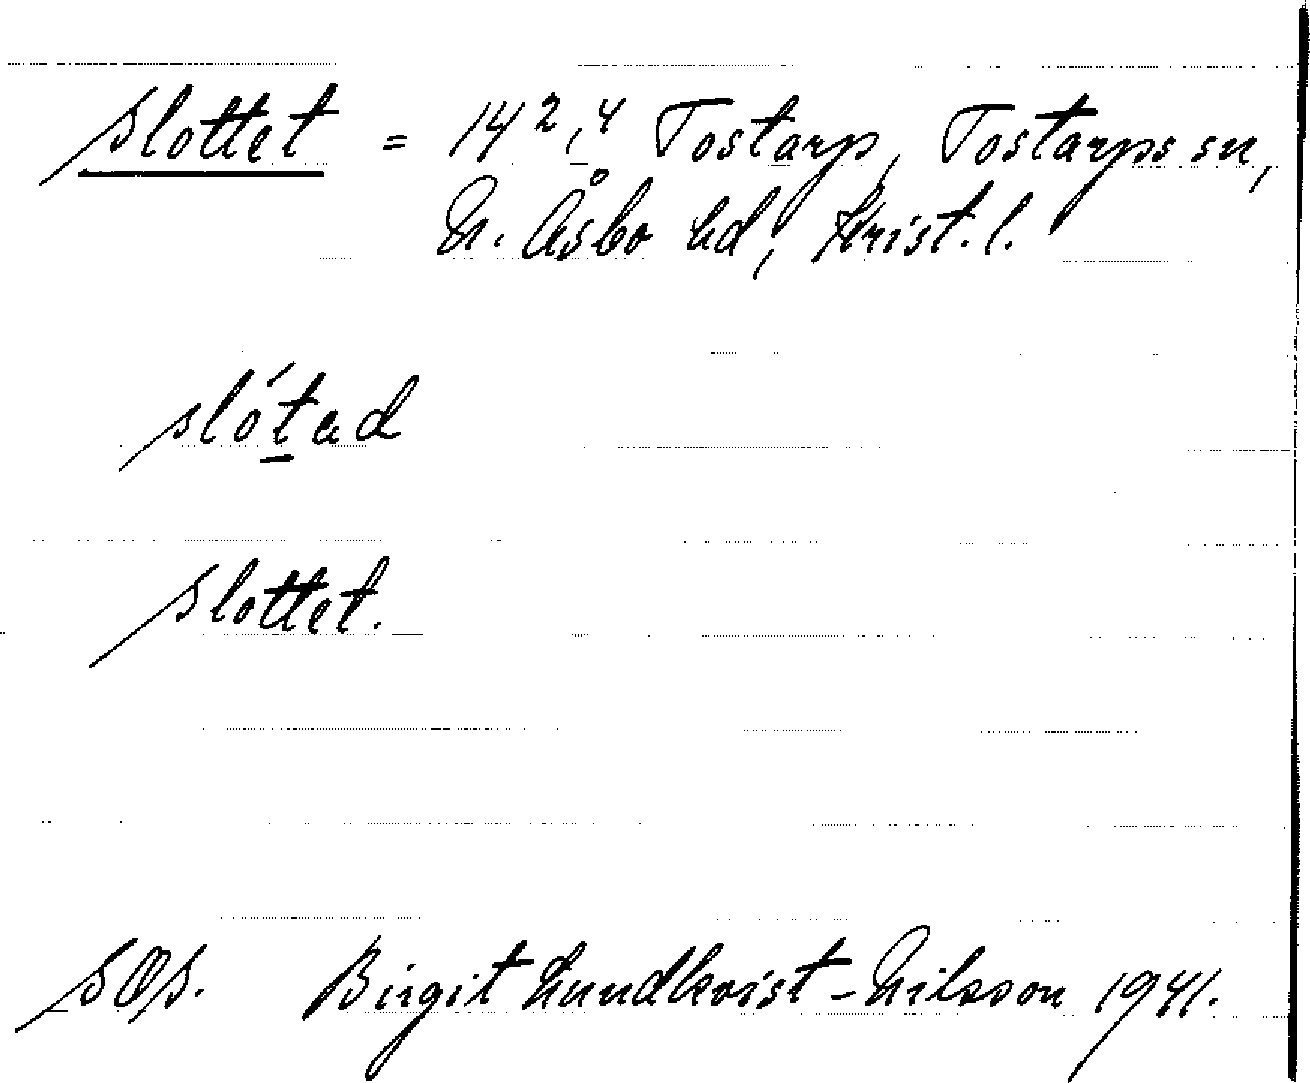 Slottet = 14²,⁴ Tostarp, Tostarps sn,
N. Åsbo hd, Krist. l.
slót̲ad
Slottet.
SOS. Birgit Lundkvist-Nilsson 1941.